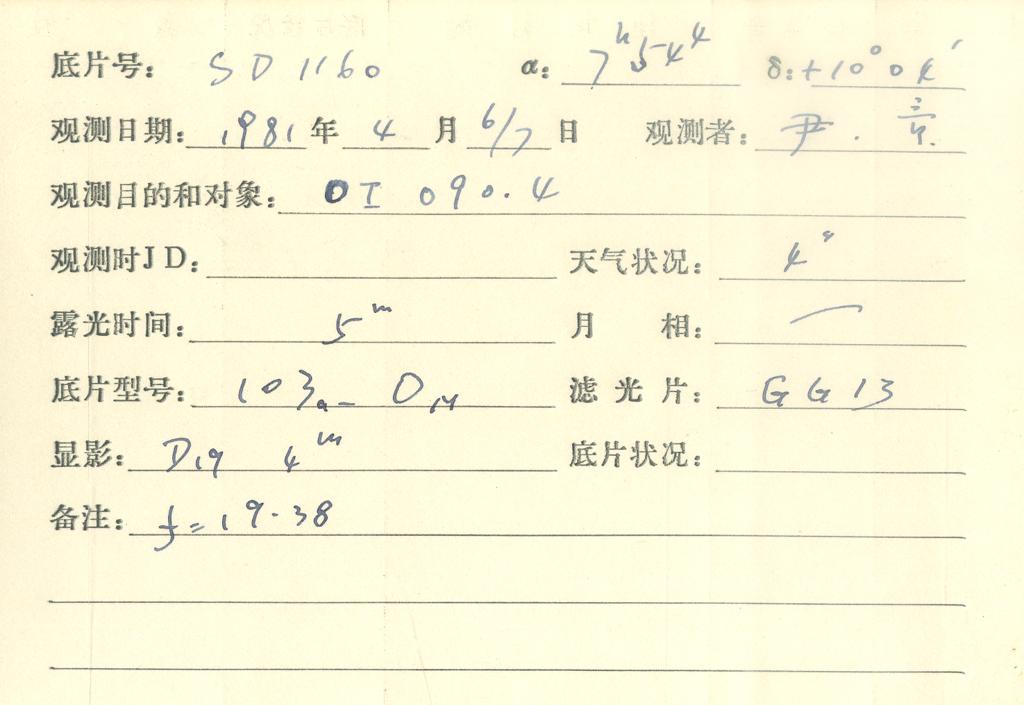 底片号: SD1160 α: 7ʰ54⁴ δ: +10°04′
观测日期: 1981年4月6/7日 观测者: 尹.
观测目的和对象: OI 090.4
观测时JD: 天气状况: 4
露光时间: 5ᵐ 月相: 一
底片型号: 103a-O 滤光片: GG13
显影: D19 4ᵐ 底片状况:
备注: f=19.38